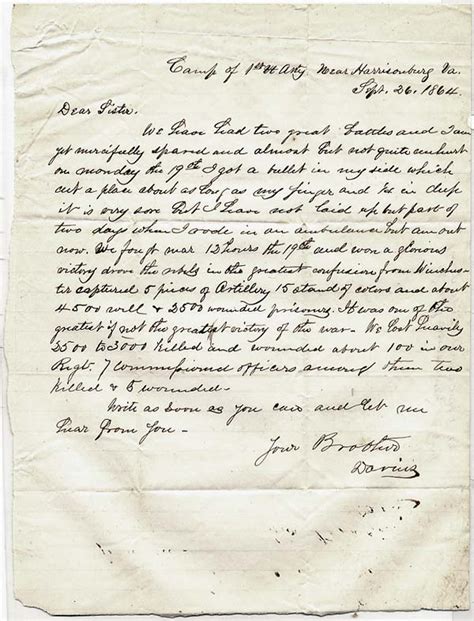 Camp of 1st H Arty Near Harrisonburg Va.
Sept. 26. 1864.
Dear Sister.
We have had two great battles and I am
yet mercifully spared and almost but not quite unhurt
on monday the 19th I got a bullet in my side which
cut a place about as long as my finger and in deep
it is very sore but I have not laid up but part of
two days when I rode in an ambulance but am out
now. We fought near 12 hours the 19th and won a glorious
victory drove the rebels in the greatest confusion from Winches-
ter captured 5 pieces of Artillery 15 stand of colors and about
4500 well & 2500 wounded prisoners. It was one of the
greatest if not the greatest victory of the war. We lost heavily
2500 to 3000 killed and wounded about 100 in our
Regt. 7 commissioned officers among them two
killed & 5 wounded.
Write as soon as you can and let me
hear from you -
Your Brother
Darius